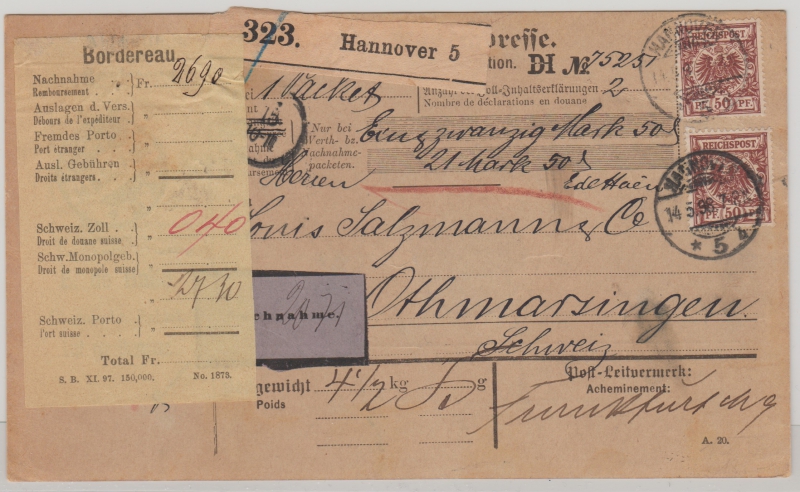 Bordereau
Nachnahme
Remboursement
Fr.
2690
Auslagen d. Vers.
Débours de l'expéditeur
Fremdes Porto
Port étranger
Ausl. Gebühren
Droits étrangers
Schweiz. Zoll
Droit de douane suisse
040
Schw. Monopolgeb.
Droit de monopole suisse
2730
Schweiz. Porto
Port suisse
Total Fr.
S. B. XI. 97. 150,000. No. 1873.
323. Hannover 5
resse.
tion. DI № 75251
Anzahl der Zoll-Inhaltserklärungen
Nombre de déclarations en douane
2
1 Packet
Nur bei
Werth- bz.
Nachnahme-
packeten.
Einundzwanzig Mark 50
21 Mark 50
Herren
Louis Salzmann & Co
Othmarsingen
Schweiz
chnahme.
gewicht
Poids
4 1/2 kg
g
Post-Leitvermerk:
Acheminement:
A. 20.
REICHSPOST
PF. 50 PF.
REICHSPOST
PF. 50 PF.
HANNOVER
14 5 98
* 5 b